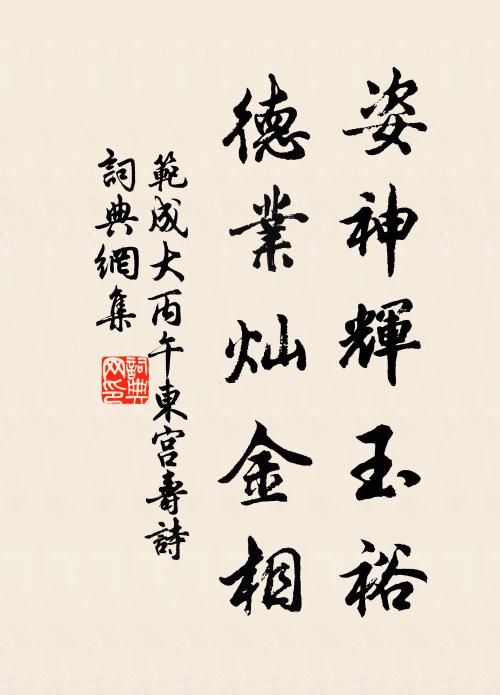 姿神輝玉裕
德業灿金相
範成大丙午東宮壽詩
詞典網集
詞典
网印